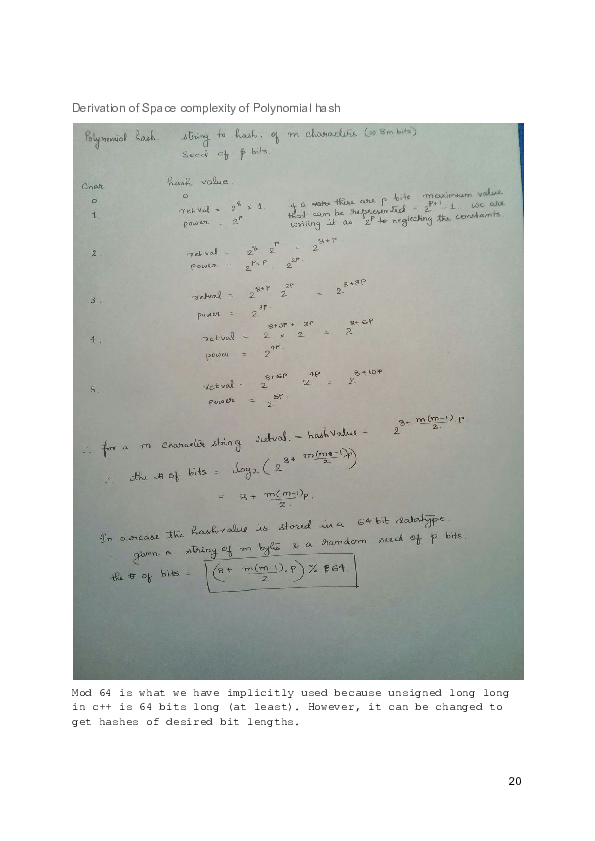 Derivation of Space complexity of Polynomial hash
Polynomial hash. string to hash. of m characters (∞ 8m bits)
seed of p bits.
Char hash value.
0 0
1 retval = 2^8 × 1. if a there are p bits maximum value
power = 2^p that can be represented = 2^(p+1) - 1. we are
writing it as 2^p to neglecting the constants.
2. retval = 2^8 2^p = 2^(8+p)
power = 2^(p+p) 2^(2p).
3. retval = 2^(8+p) 2^(2p) = 2^(8+3p)
power = 2^(3p)
4. retval = 2^(8+3p) × 2^(3p) = 2^(8+6p)
power = 2^(4p)
5. retval = 2^(8+6p) 2^(4p) = 2^(8+10p)
power = 2^(5p)
∴ for a m character string retval. = hashValue = 2^(8+ m(m-1)/2 . p)
∴ the # of bits = log2 (2^(8+ m(m-1)/2 p))
= 8 + m(m-1)/2 p.
In ourcase the hashvalue is stored in a 64 bit datatype.
given a string of m bytes & a random seed of p bits.
the # of bits = (8 + m(m-1)/2 . p) % 64
Mod 64 is what we have implicitly used because unsigned long long
in c++ is 64 bits long (at least). However, it can be changed to
get hashes of desired bit lengths.
20